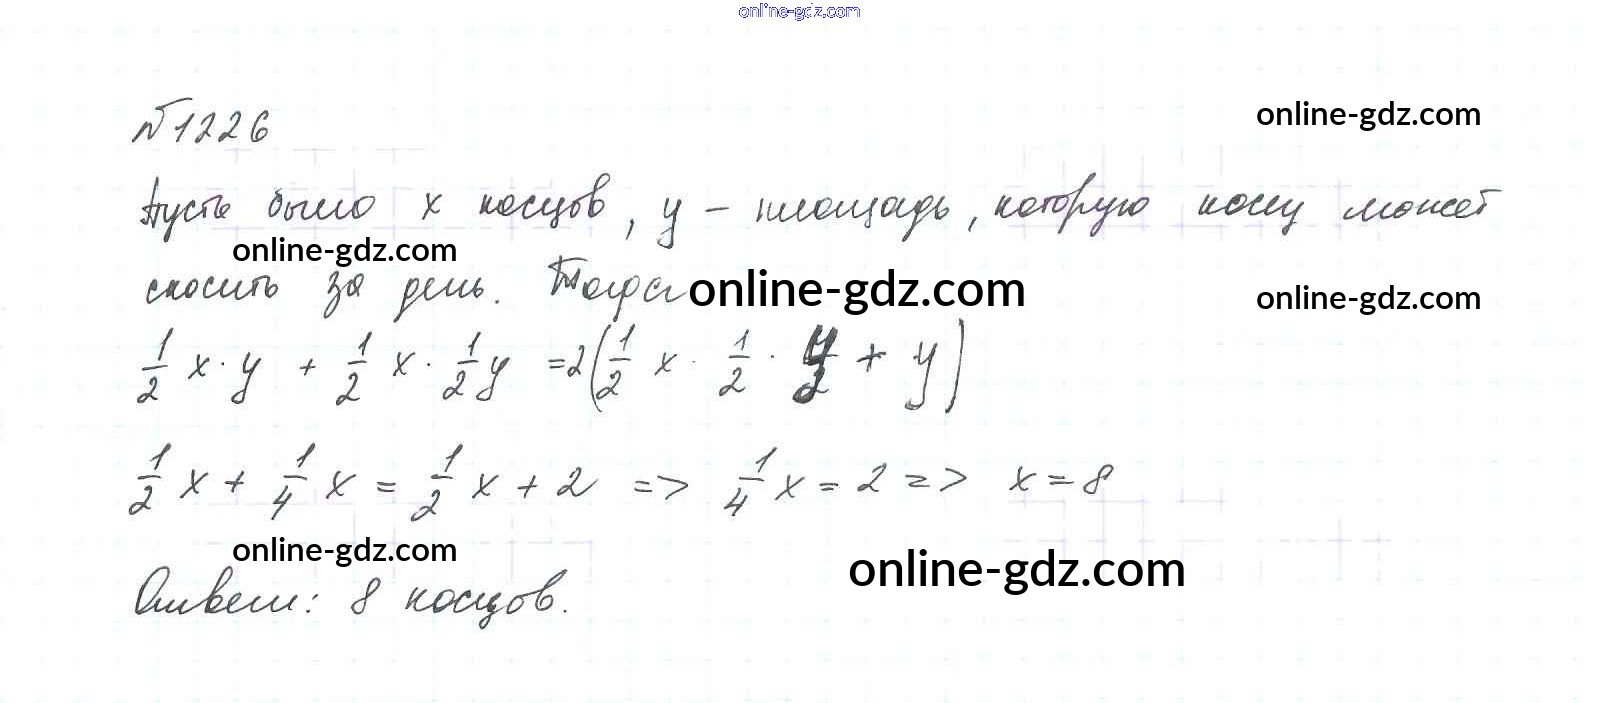 online-gdz.com
№1226
online-gdz.com
Пусть было x косцов, y – площадь, которую косец может
online-gdz.com
скосить за день. Тогда
online-gdz.com
online-gdz.com
1/2 x · y + 1/2 x · 1/2 y = 2(1/2 x · 1/2 · y/2 + y)
1/2 x + 1/4 x = 1/2 x + 2 => 1/4 x = 2 => x = 8
online-gdz.com
online-gdz.com
Ответ: 8 косцов.